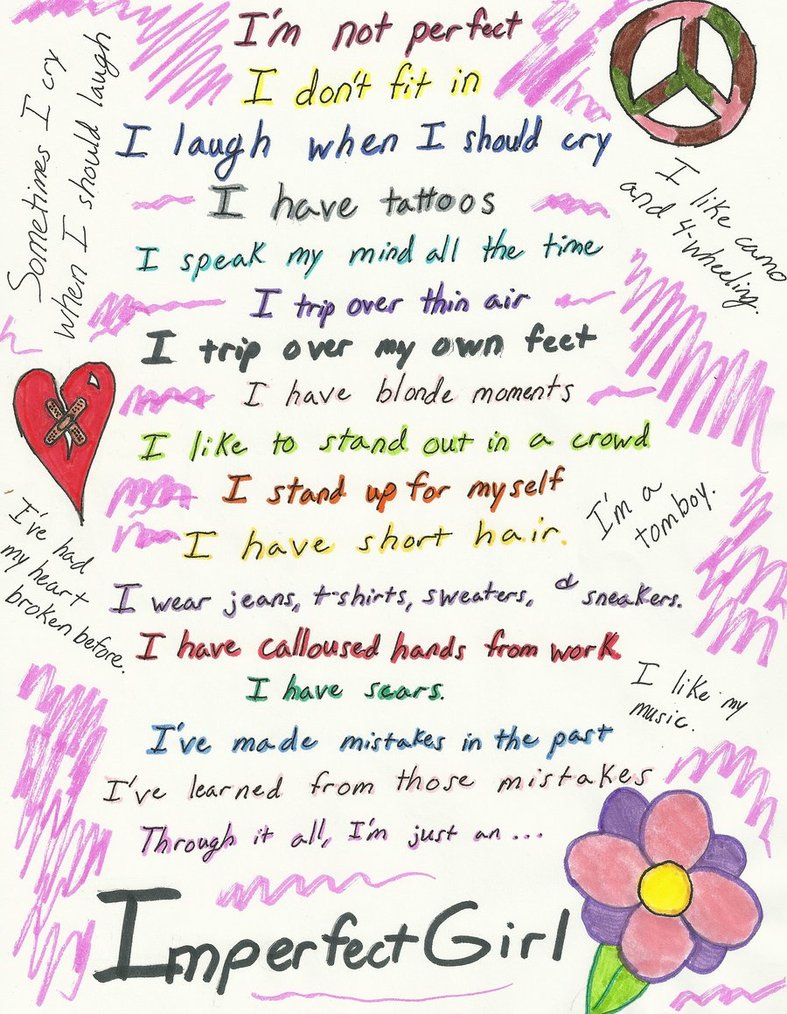 I'm not perfect
I don't fit in
I laugh when I should cry
I have tattoos
I speak my mind all the time
I trip over thin air
I trip over my own feet
I have blonde moments
I like to stand out in a crowd
I stand up for myself
I have short hair.
I wear jeans, t-shirts, sweaters, & sneakers.
I have calloused hands from work
I have scars.
I've made mistakes in the past
I've learned from those mistakes
Through it all, I'm just an...
Imperfect Girl
Sometimes I cry
when I should laugh
I like camo
and 4-wheeling.
I've had
my heart
broken before.
I'm a
tomboy.
I like my
music.